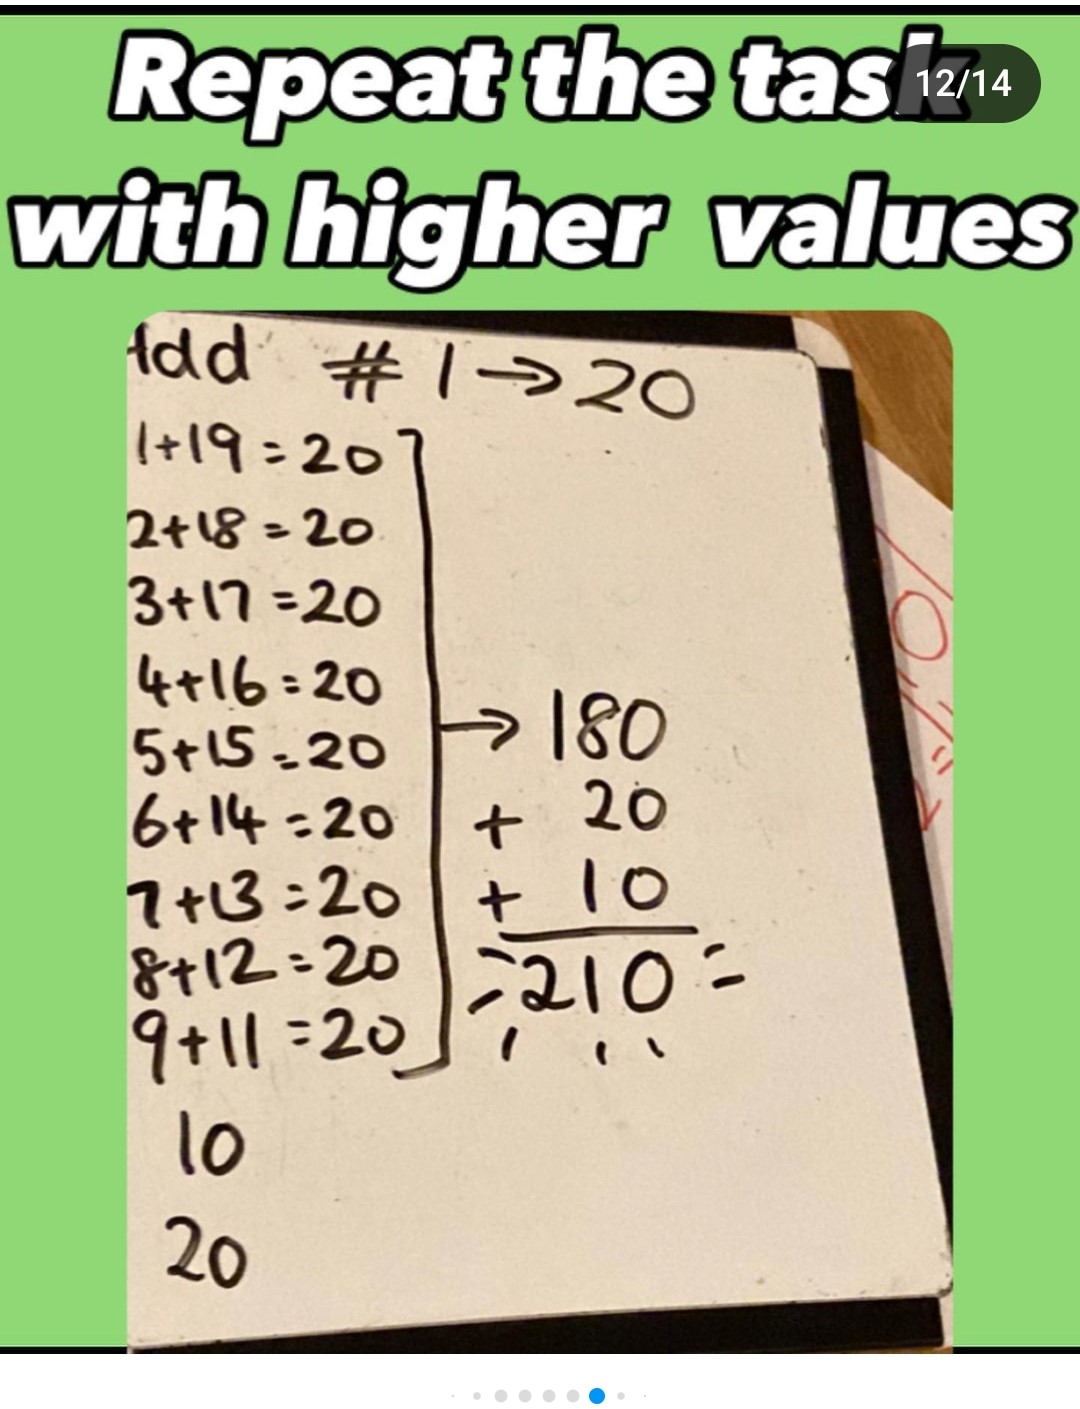 Repeat the task
12/14
with higher values
Add # 1→20
1+19=20
2+18=20
3+17=20
4+16=20
5+15=20
6+14=20
7+13=20
8+12=20
9+11=20
10
20
→180
+ 20
+ 10
=210=